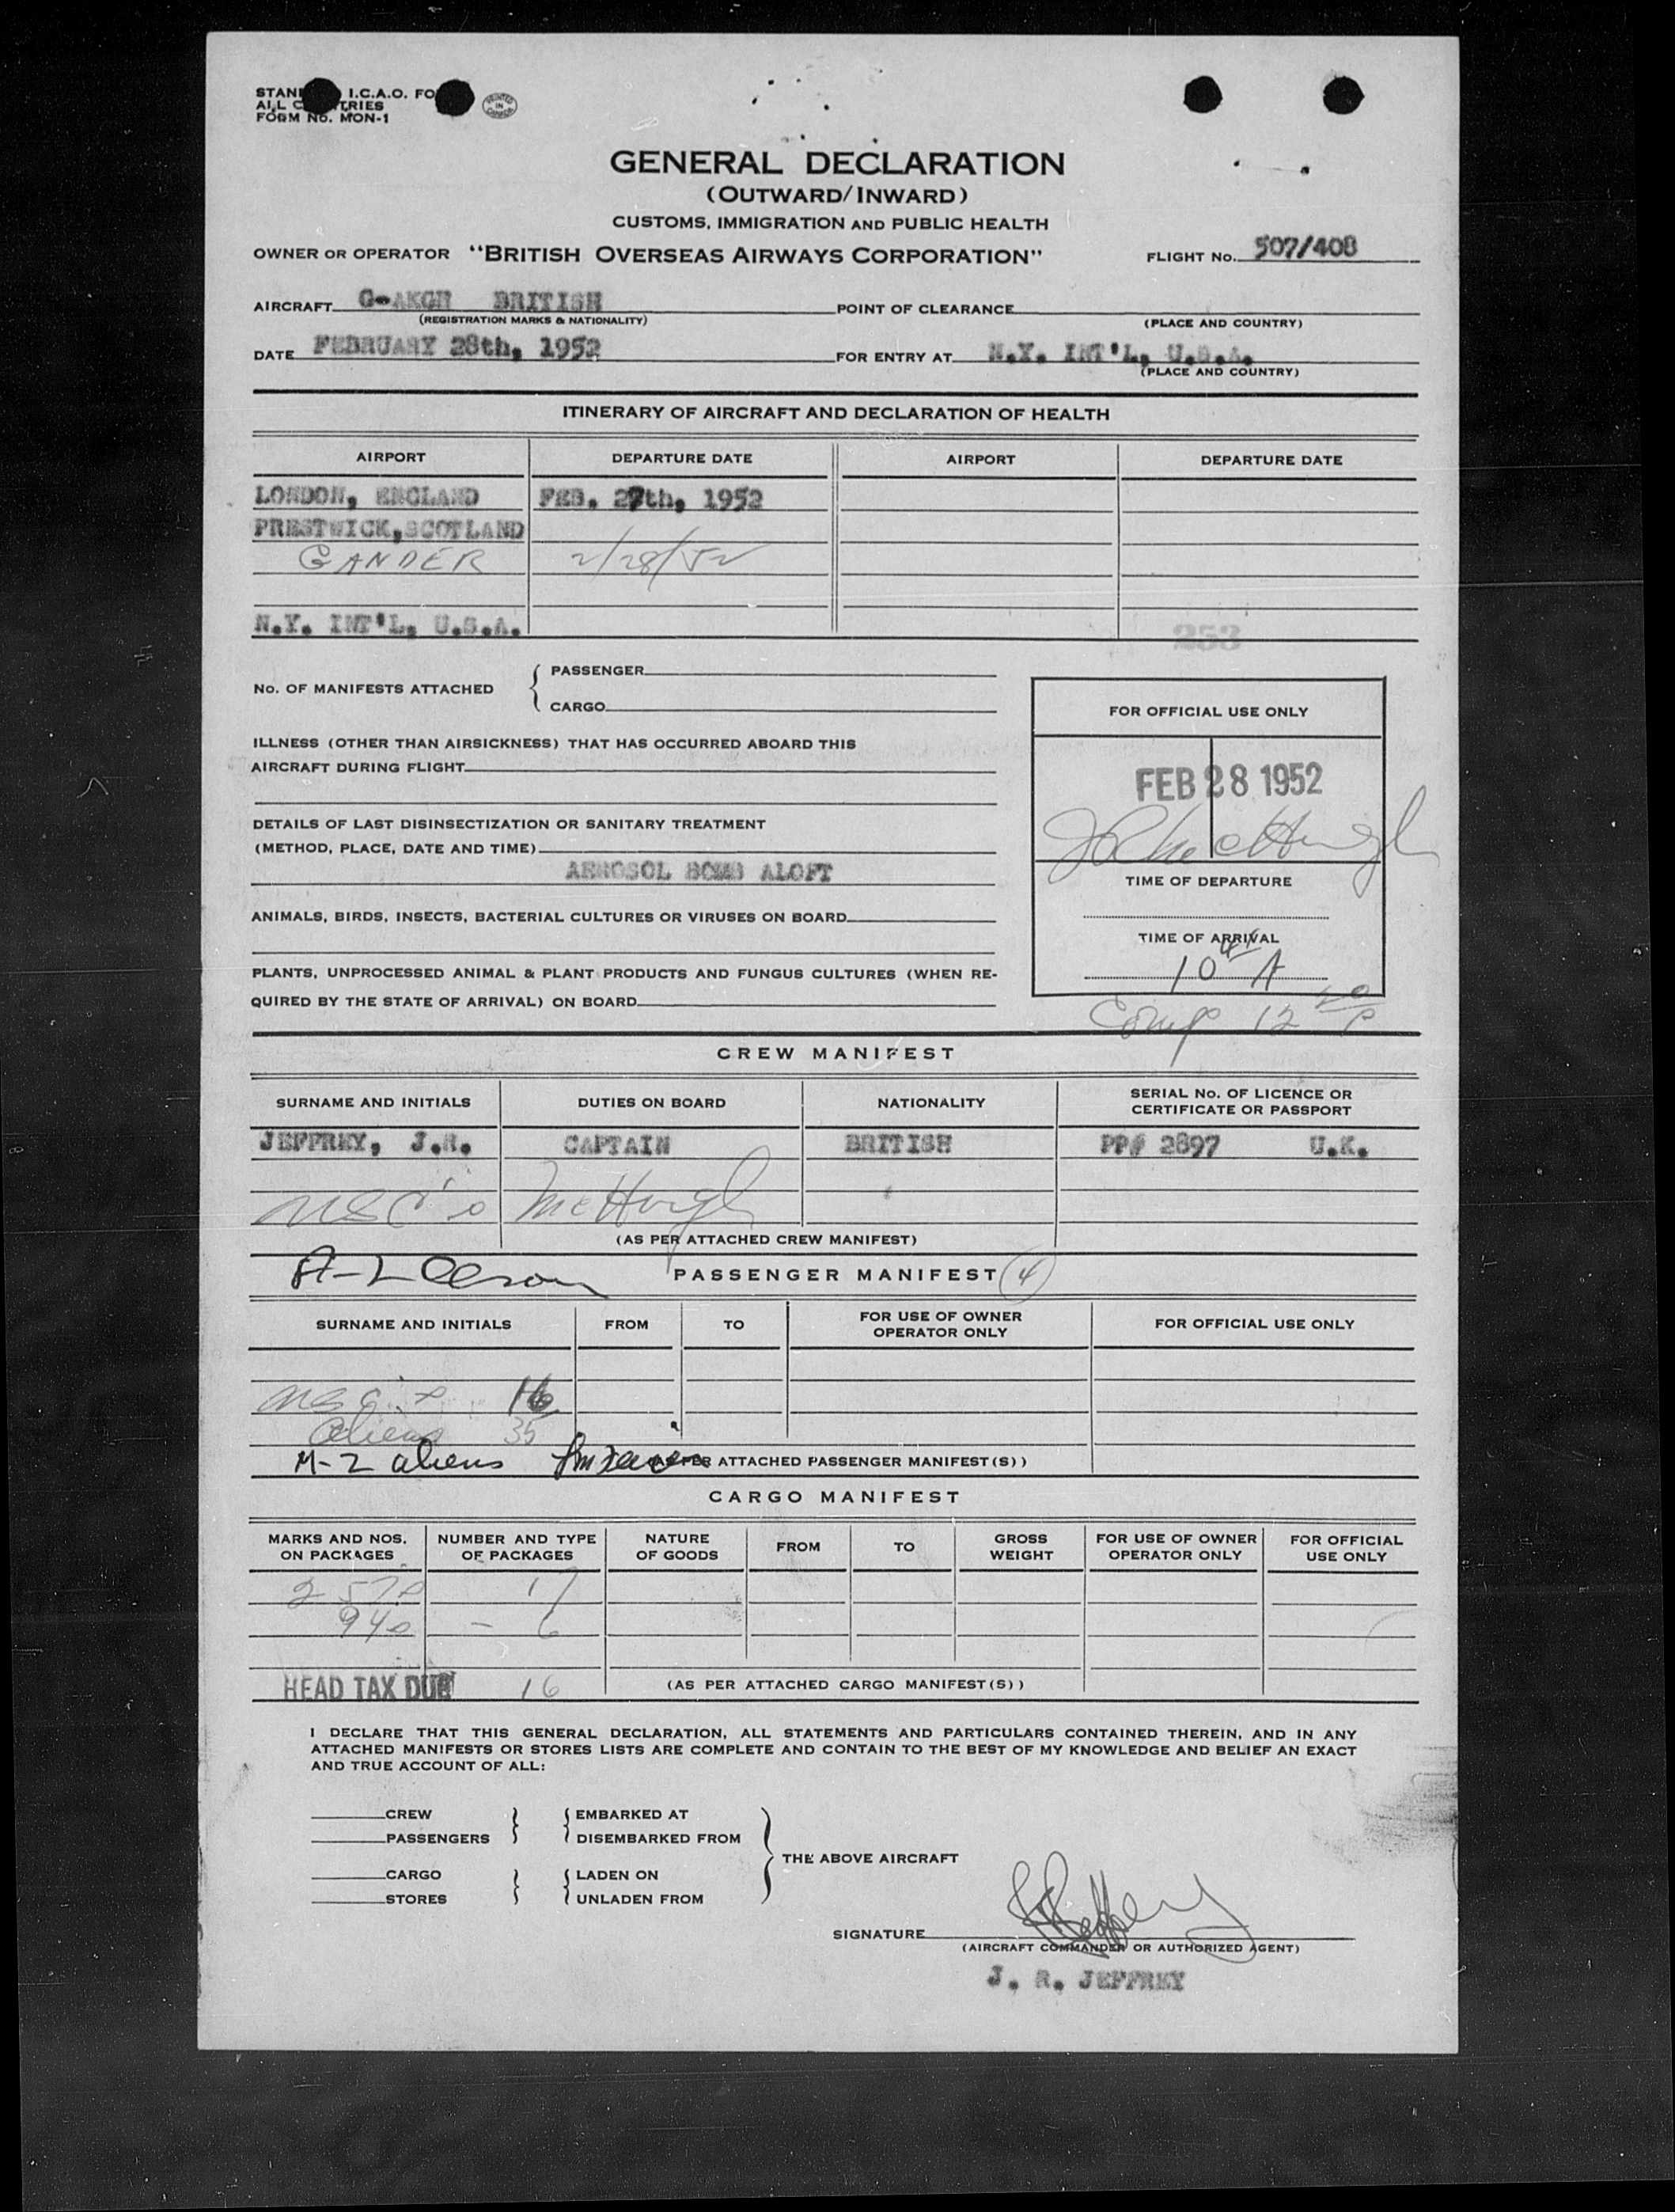 I.C.A.O.
FORM No. MON-1
PRINTED IN CANADA
GENERAL DECLARATION
(OUTWARD/INWARD)
CUSTOMS, IMMIGRATION AND PUBLIC HEALTH
OWNER OR OPERATOR "BRITISH OVERSEAS AIRWAYS CORPORATION" FLIGHT No. 507/408
AIRCRAFT G-AKGH BRITISH POINT OF CLEARANCE
(REGISTRATION MARKS & NATIONALITY) (PLACE AND COUNTRY)
DATE FEBRUARY 28th, 1952 FOR ENTRY AT N.Y. INT'L, U.S.A.
(PLACE AND COUNTRY)
ITINERARY OF AIRCRAFT AND DECLARATION OF HEALTH
AIRPORT DEPARTURE DATE AIRPORT DEPARTURE DATE
LONDON, ENGLAND FEB. 27th, 1952
PRESTWICK, SCOTLAND
GANDER 2/28/52
N.Y. INT'L, U.S.A.
253
No. OF MANIFESTS ATTACHED PASSENGER
CARGO
FOR OFFICIAL USE ONLY
ILLNESS (OTHER THAN AIRSICKNESS) THAT HAS OCCURRED ABOARD THIS
AIRCRAFT DURING FLIGHT
FEB 28 1952
DETAILS OF LAST DISINSECTIZATION OR SANITARY TREATMENT
(METHOD, PLACE, DATE AND TIME)
AEROSOL BOMB ALOFT
McHugh
TIME OF DEPARTURE
ANIMALS, BIRDS, INSECTS, BACTERIAL CULTURES OR VIRUSES ON BOARD
TIME OF ARRIVAL
10 A
PLANTS, UNPROCESSED ANIMAL & PLANT PRODUCTS AND FUNGUS CULTURES (WHEN RE-
QUIRED BY THE STATE OF ARRIVAL) ON BOARD
Comp 12 P
CREW MANIFEST
SURNAME AND INITIALS DUTIES ON BOARD NATIONALITY SERIAL No. OF LICENCE OR
CERTIFICATE OR PASSPORT
JEFFREY, J.R. CAPTAIN BRITISH PP# 2897 U.K.
USC's McHugh
(AS PER ATTACHED CREW MANIFEST)
PASSENGER MANIFEST 4
SURNAME AND INITIALS FROM TO FOR USE OF OWNER
OPERATOR ONLY FOR OFFICIAL USE ONLY
16
aliens 35
M-2 aliens
ATTACHED PASSENGER MANIFEST(S))
CARGO MANIFEST
MARKS AND NOS.
ON PACKAGES NUMBER AND TYPE
OF PACKAGES NATURE
OF GOODS FROM TO GROSS
WEIGHT FOR USE OF OWNER
OPERATOR ONLY FOR OFFICIAL
USE ONLY
257s 17
94s - 6
HEAD TAX DUE 16 (AS PER ATTACHED CARGO MANIFEST(S))
I DECLARE THAT THIS GENERAL DECLARATION, ALL STATEMENTS AND PARTICULARS CONTAINED THEREIN, AND IN ANY
ATTACHED MANIFESTS OR STORES LISTS ARE COMPLETE AND CONTAIN TO THE BEST OF MY KNOWLEDGE AND BELIEF AN EXACT
AND TRUE ACCOUNT OF ALL:
CREW EMBARKED AT
PASSENGERS DISEMBARKED FROM
THE ABOVE AIRCRAFT
CARGO LADEN ON
STORES UNLADEN FROM
SIGNATURE
(AIRCRAFT COMMANDER OR AUTHORIZED AGENT)
J. R. JEFFREY